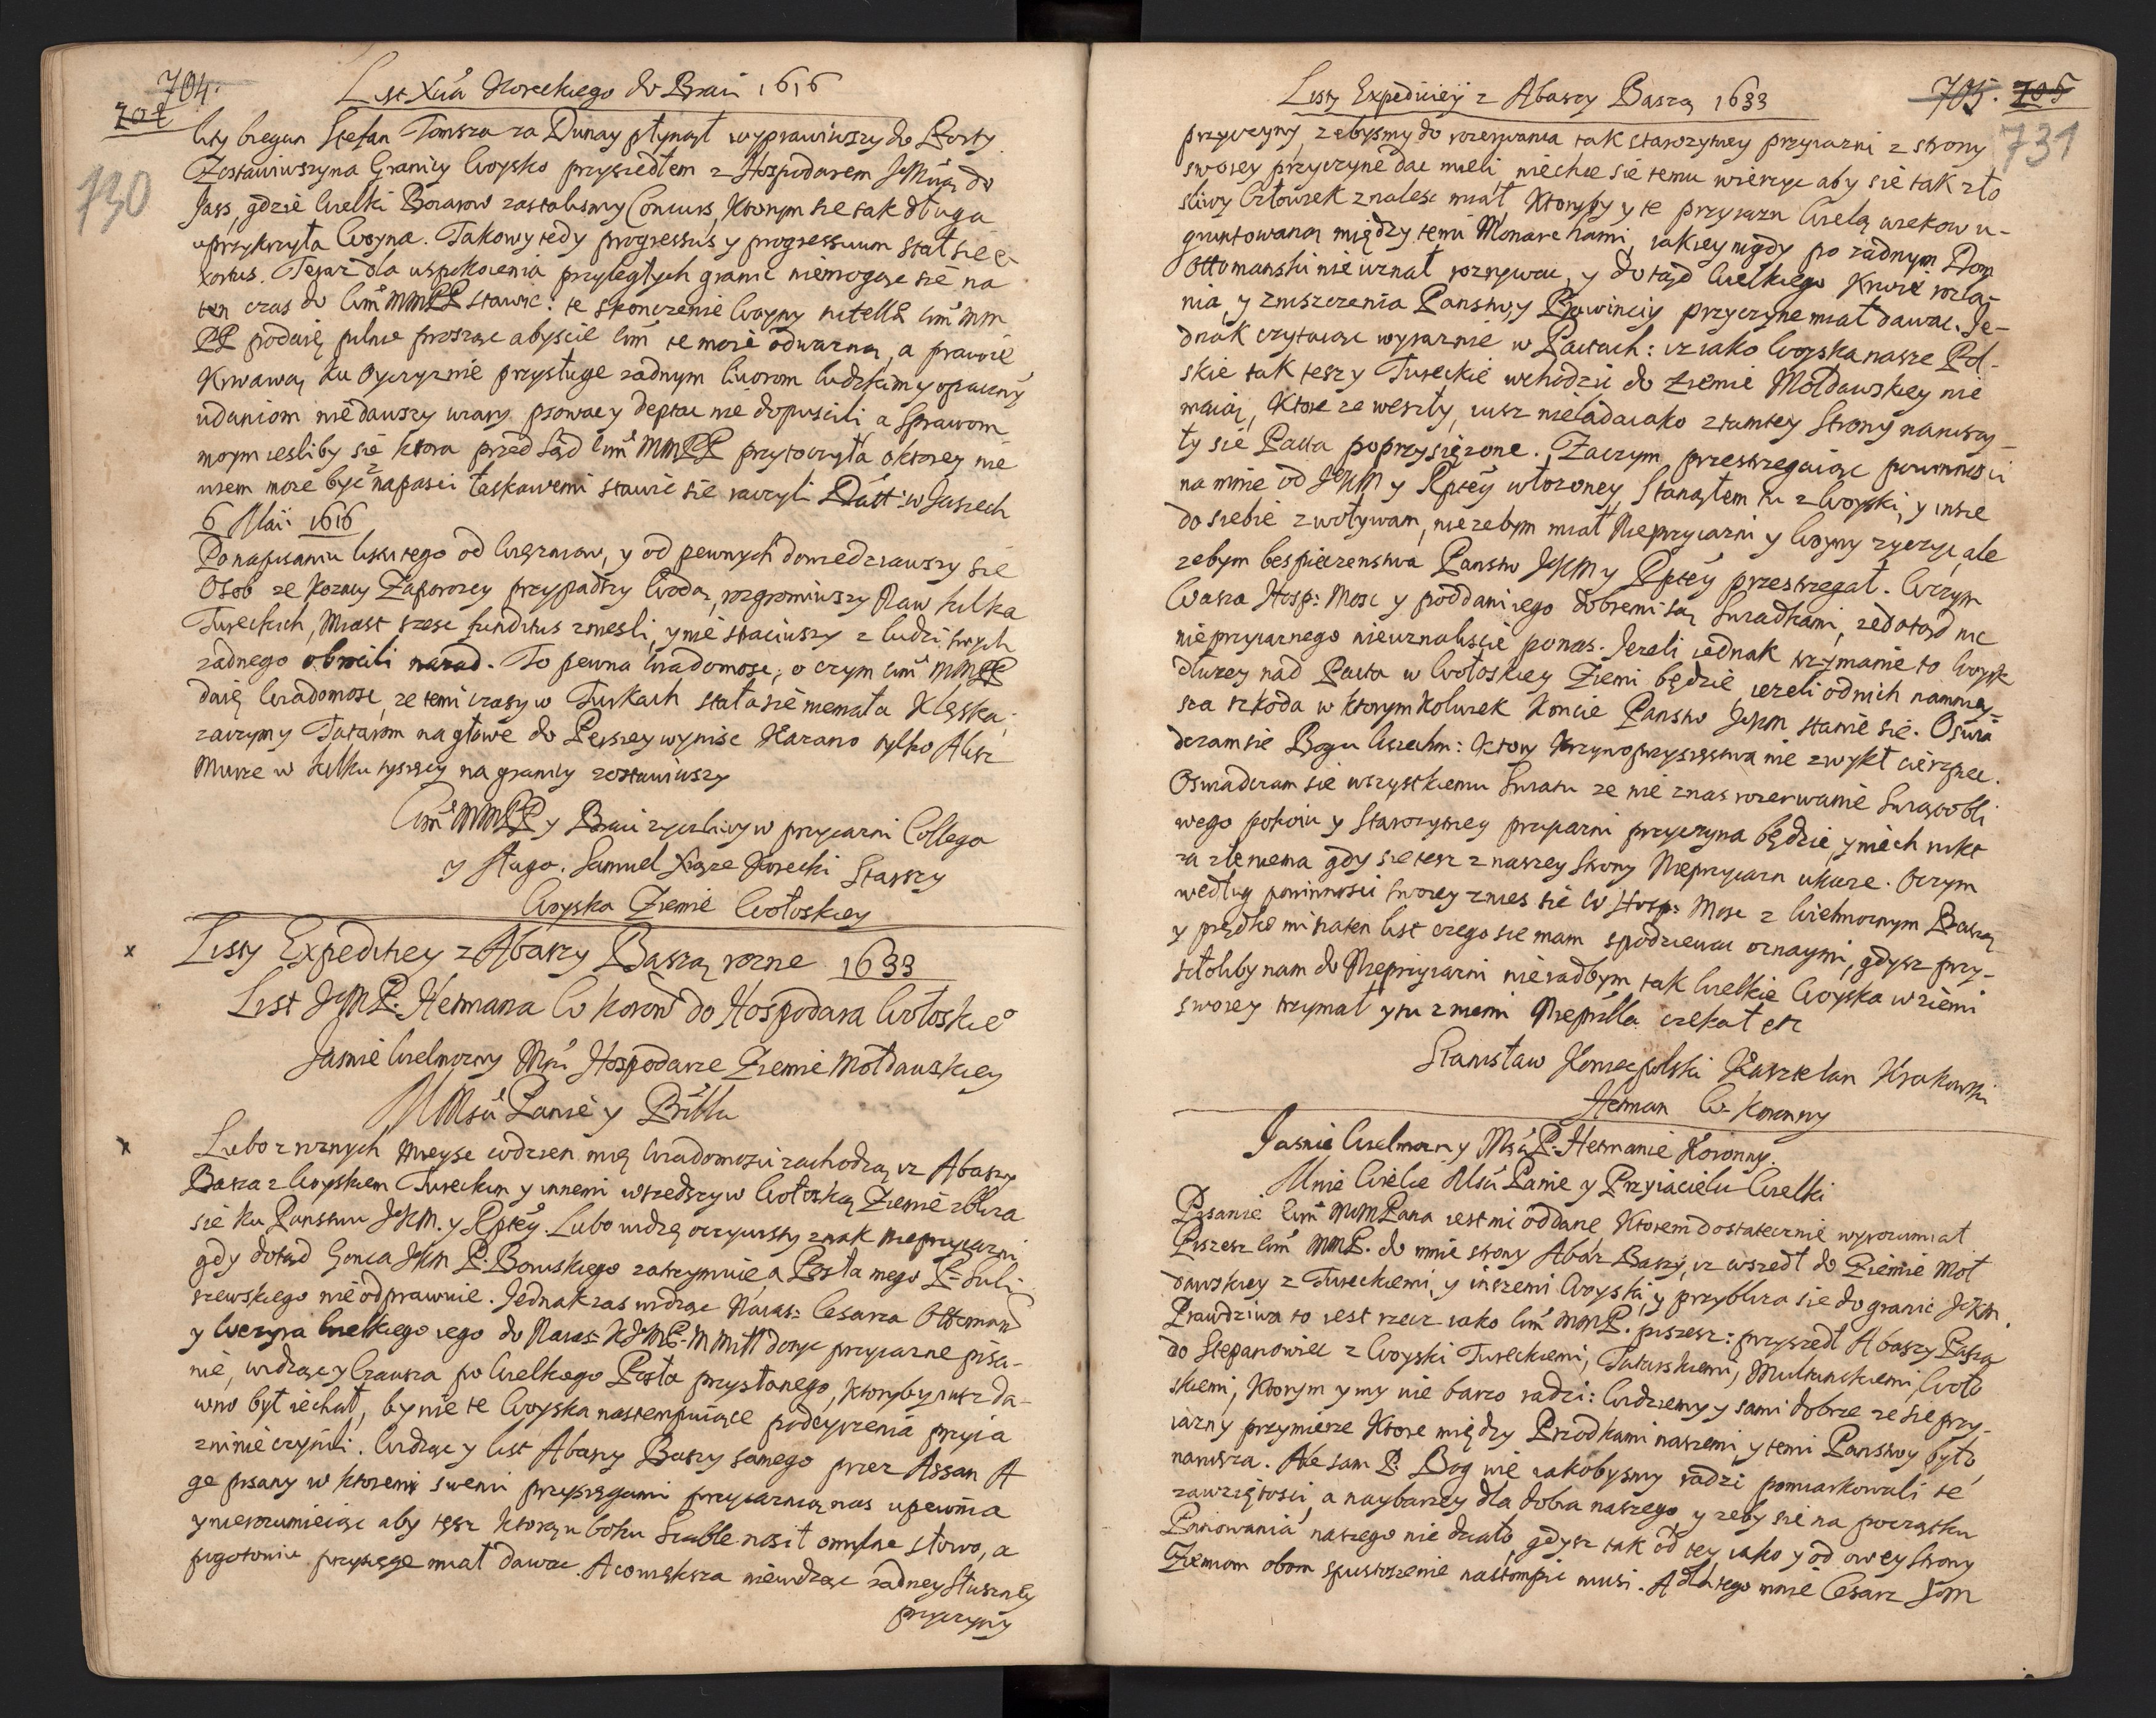 704.
704
730
List Xcia Koreckiego do Braci 1616
lity bregan Stefan Tomsza za Dunay płynął wyprawiwszy do Porty
Zostawiwszy na Granicy Woysko przyszedłem z Hospodarem JeMcią do
Jass, gdzie wielki Boiarow zastalismy Concurs, ktorym sie tak długa
uprzykrzyła Woyna. Takowy tedy progressus y progressuum stał sie e-
xortus. Teraz dla uspokoienia przyległych granic niemogąc sie na
ten czas do Wm MMPP stawic: te skonczenie Woyny Wm MM
PP podaię pilno prosząc abyscie Wm te moie odważną, a prawie
krwawą ku Oyczyznie przysługe zadnym liworom ludzkim y opacznÿ
udaniom niedawszy wiary, psowac y deptac nie dopuscili a sprawom
moym iesliby sie ktora przed Sąd Wm MMPP przytoczyła o ktorey nie
wiem moze byc z napasci łaskawemi stawic sie raczyli Datt: w Jasiech
6 Maii 1616
Po napisaniu listu tego od Więzniow, y od pewnych dowiedziawszy sie
Osob ze Kozacy Zaporozcy przypadszy Wodą, rozgromiwszy Naw kilka
Tureckich, Miast szesc funditus zniesli, y nie straciwszy z ludzi swych
zadnego obrocili nazad. To pewna wiadomosc, o czym Wm MMPP
daię wiadomosc, ze temi czasy w Turkach stała sie niemała Klęska,
zaczym y Tatarom na głowe do Persiey wynisc kazano tylko Alisz
Murze w kilku tysięcy na granicy zostawiwszy
Wm MMPP y Braci zyczliwy w przyiazni Collega
y sługa. Samuel Xiąze Korecki Starszy
Woyska Ziemie Wołoskiey
x Listy Expeditiey z Abaszy Baszą rozne 1633
List JeMP. Hetmana W Koron do Hospodara Wołoskie°
Jasnie Wielmozny Msci Hospodarze Ziemie Mołdawskiey
MMsci Panie y Priillu
x Lubo z roznych mieysc co dzien mię wiadomosci zachodzą iz Abaszy
Basza z Woyskiem Tureckim y innemi wszedszy w Wołoską Ziemie zbliza
sie ku Panstwu JKM. y Rptey. Lubo widzę oczywisty znak nieprzyiazni
gdy dotąd Gonca JKM P. zatrzymuie, a Posła mego P. Suli-
szewskiego nie odprawuie. Jednak zas widząc Naias: Cesarza Ottoman
y Wezyra wielkiego iego do Naias: KJeMP. M Mitt dosyc przyiazne pisa-
nie, widząc y Czausza po Wielkiego Posła przysłanego, ktoryby iusz da-
wno był iechał, by nie te Woyska nastempuiące podeyrzenia przyia
zni nie czynili. Widząc y list Abaszy Baszy samego przez Assan A
ge pisany w ktorem swemi przysięgami przyiaznią nas upewnia
y nierozumieiąc aby tesz ktorą u boku Szable nosił omylne słowo, a
pogotowiu przysięge miał dawac. A co większa niewidząc zadney słuszney
przyczyny
Listy Expediciey z Abaszy Baszą 1633
705. 705
731
przyczyny, zebysmy do rozerwania tak starozytney przyiazni z strony
swoiey przyczyne dac mieli, niechce sie temu wierzyc aby sie tak zło
sliwy Człowiek znalesc miał ktoryby y te przyiazn Wielą wiekow u-
gruntowaną między temi Monarchami, iakiey nigdy po zadnym Dom
Ottomanski nie uznał rozrywac, y dotąd wielkiego krwie rozla-
nia, y zniszczenia Panstw y Prowinciy przyczyne miał dawac. Je-
dnak czytaiąc wyraznie w Pactach: iz iako Woyska nasze Pol-
skie tak tesz y Tureckie wchodzic do Ziemie Mołdawskiey nie
maią, ktore ze weszły, iusz nieladaiako z tamtey Strony naruszy-
ły sie Pacta poprzysiężone. Zaczym przestrzegaiąc powinnosci
na mnie od JeKM y Rptey włozoney, Stanąłem tu z Woyski, y insze
do siebie zwoływam, nie zebym miał Nieprzyiazni y Woyny zyczyc, ale
zebym bespieczenstwa Panstw JeKM y Rptey przestrzegał. W czym
Wasza Hosp: Mosc y poddani iego dobremi są swiadkami, ze dotąd nic
nieprzyiaznego nieuznaliscie po nas. Jezeli iednak trzymanie to Woysk
dłuzey nad Pacta w Wołoskiey Ziemi będzie, iezeli od nich namniey-
sza szkoda w ktorymkolwiek Koncie Panstw JeKM stanie sie. Oswia
dczam sie Bogu Wszechm: ktory krzywoprzysięstwa nie zwykł cierpiec.
Oswiadczam sie wszystkiemu Swiatu ze nie z nas rozerwanie Swiątobli
wego pokoiu y Starozytney przyiazni przyczyna będzie, y niech nikt
za złe niema gdy sie tesz z naszey Strony Nieprzyiazn ukaze. O czym
według powinnosci swoiey znies sie W Hosp: Mosc z Wielmoznym Baszą
y prędko mi na ten list czego sie mam spodziewac oznaymi, gdysz przy-
szłoliby nam do Nieprzyiazni nieradbym tak wielkie Woyska w ziemi
swoiey trzymał y tu z niemi Nieprilla czekał etc
Stanisław Koniecpolski Kasztelan Krakowski
Hetman W Koronny
Jasnie Wielmozny Msci P. Hetmanie Koronny.
Mnie Wielce Msci Panie y Przyiacielu Wielki
Pisanie Wm MMPana iest mi oddane, ktorem dostatecznie wyrozumiał
Piszesz Wm MMP. do mnie strony Abaz Baszy, iz wszedł do Ziemie Moł
dawskiey z Tureckiemi, y inszemi Woyski, y przybliza sie do granic JeKM.
Prawdziwa to iest rzecz iako Wm MMP. piszesz: przyszedł Abaszy Basza
do Stepanowiec z Woyski Tureckiemi, Tatarskiemi, Multanskiemi, Woło
skiemi, ktorym y my nie barzo radzi: Widziemy y sami dobrze ze sie przy-
iazny przymierze ktore między Przodkami naszemi, y temi Panstwy było,
narusza. Ale sam P. Bog wie iakobysmy radzi pomiarkowali te
zawziętosci, a naybarzey dla dobra naszego, y zeby sie na początku
Panowania naszego nie działo, gdysz tak od tey iako y od owey Strony
Ziemiom obom spustoszenie nastompic musi. A dlatego mnie Cesarz JeM